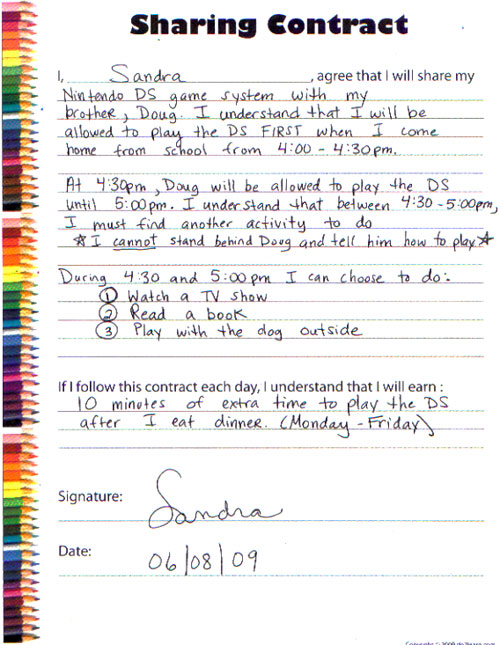 Sharing Contract
I, Sandra, agree that I will share my
Nintendo DS game system with my
brother, Doug. I understand that I will be
allowed to play the DS FIRST when I come
home from school from 4:00 - 4:30pm.
At 4:30pm, Doug will be allowed to play the DS
until 5:00pm. I understand that between 4:30-5:00pm,
I must find another activity to do
☆ I cannot stand behind Doug and tell him how to play ☆
During 4:30 and 5:00pm I can choose to do:
① Watch a TV show
② Read a book
③ Play with the dog outside
If I follow this contract each day, I understand that I will earn:
10 minutes of extra time to play the DS
after I eat dinner. (Monday - Friday)
Signature: Sandra
Date: 06/08/09